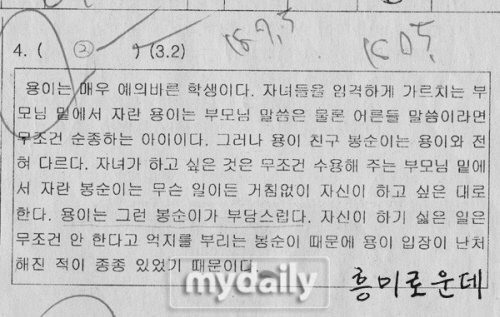 4. ( ② ) (3.2)
용이는 매우 예의바른 학생이다. 자녀들을 엄격하게 가르치는 부
모님 밑에서 자란 용이는 부모님 말씀은 물론 어른들 말씀이라면
무조건 순종하는 아이이다. 그러나 용이 친구 봉순이는 용이와 전
혀 다르다. 자녀가 하고 싶은 것은 무조건 수용해 주는 부모님 밑에
서 자란 봉순이는 무슨 일이든 거침없이 자신이 하고 싶은 대로
한다. 용이는 그런 봉순이가 부담스럽다. 자신이 하기 싫은 일은
무조건 안 한다고 억지를 부리는 봉순이 때문에 용이 입장이 난처
해진 적이 종종 있었기 때문이다.
mydaily
흥미로운데